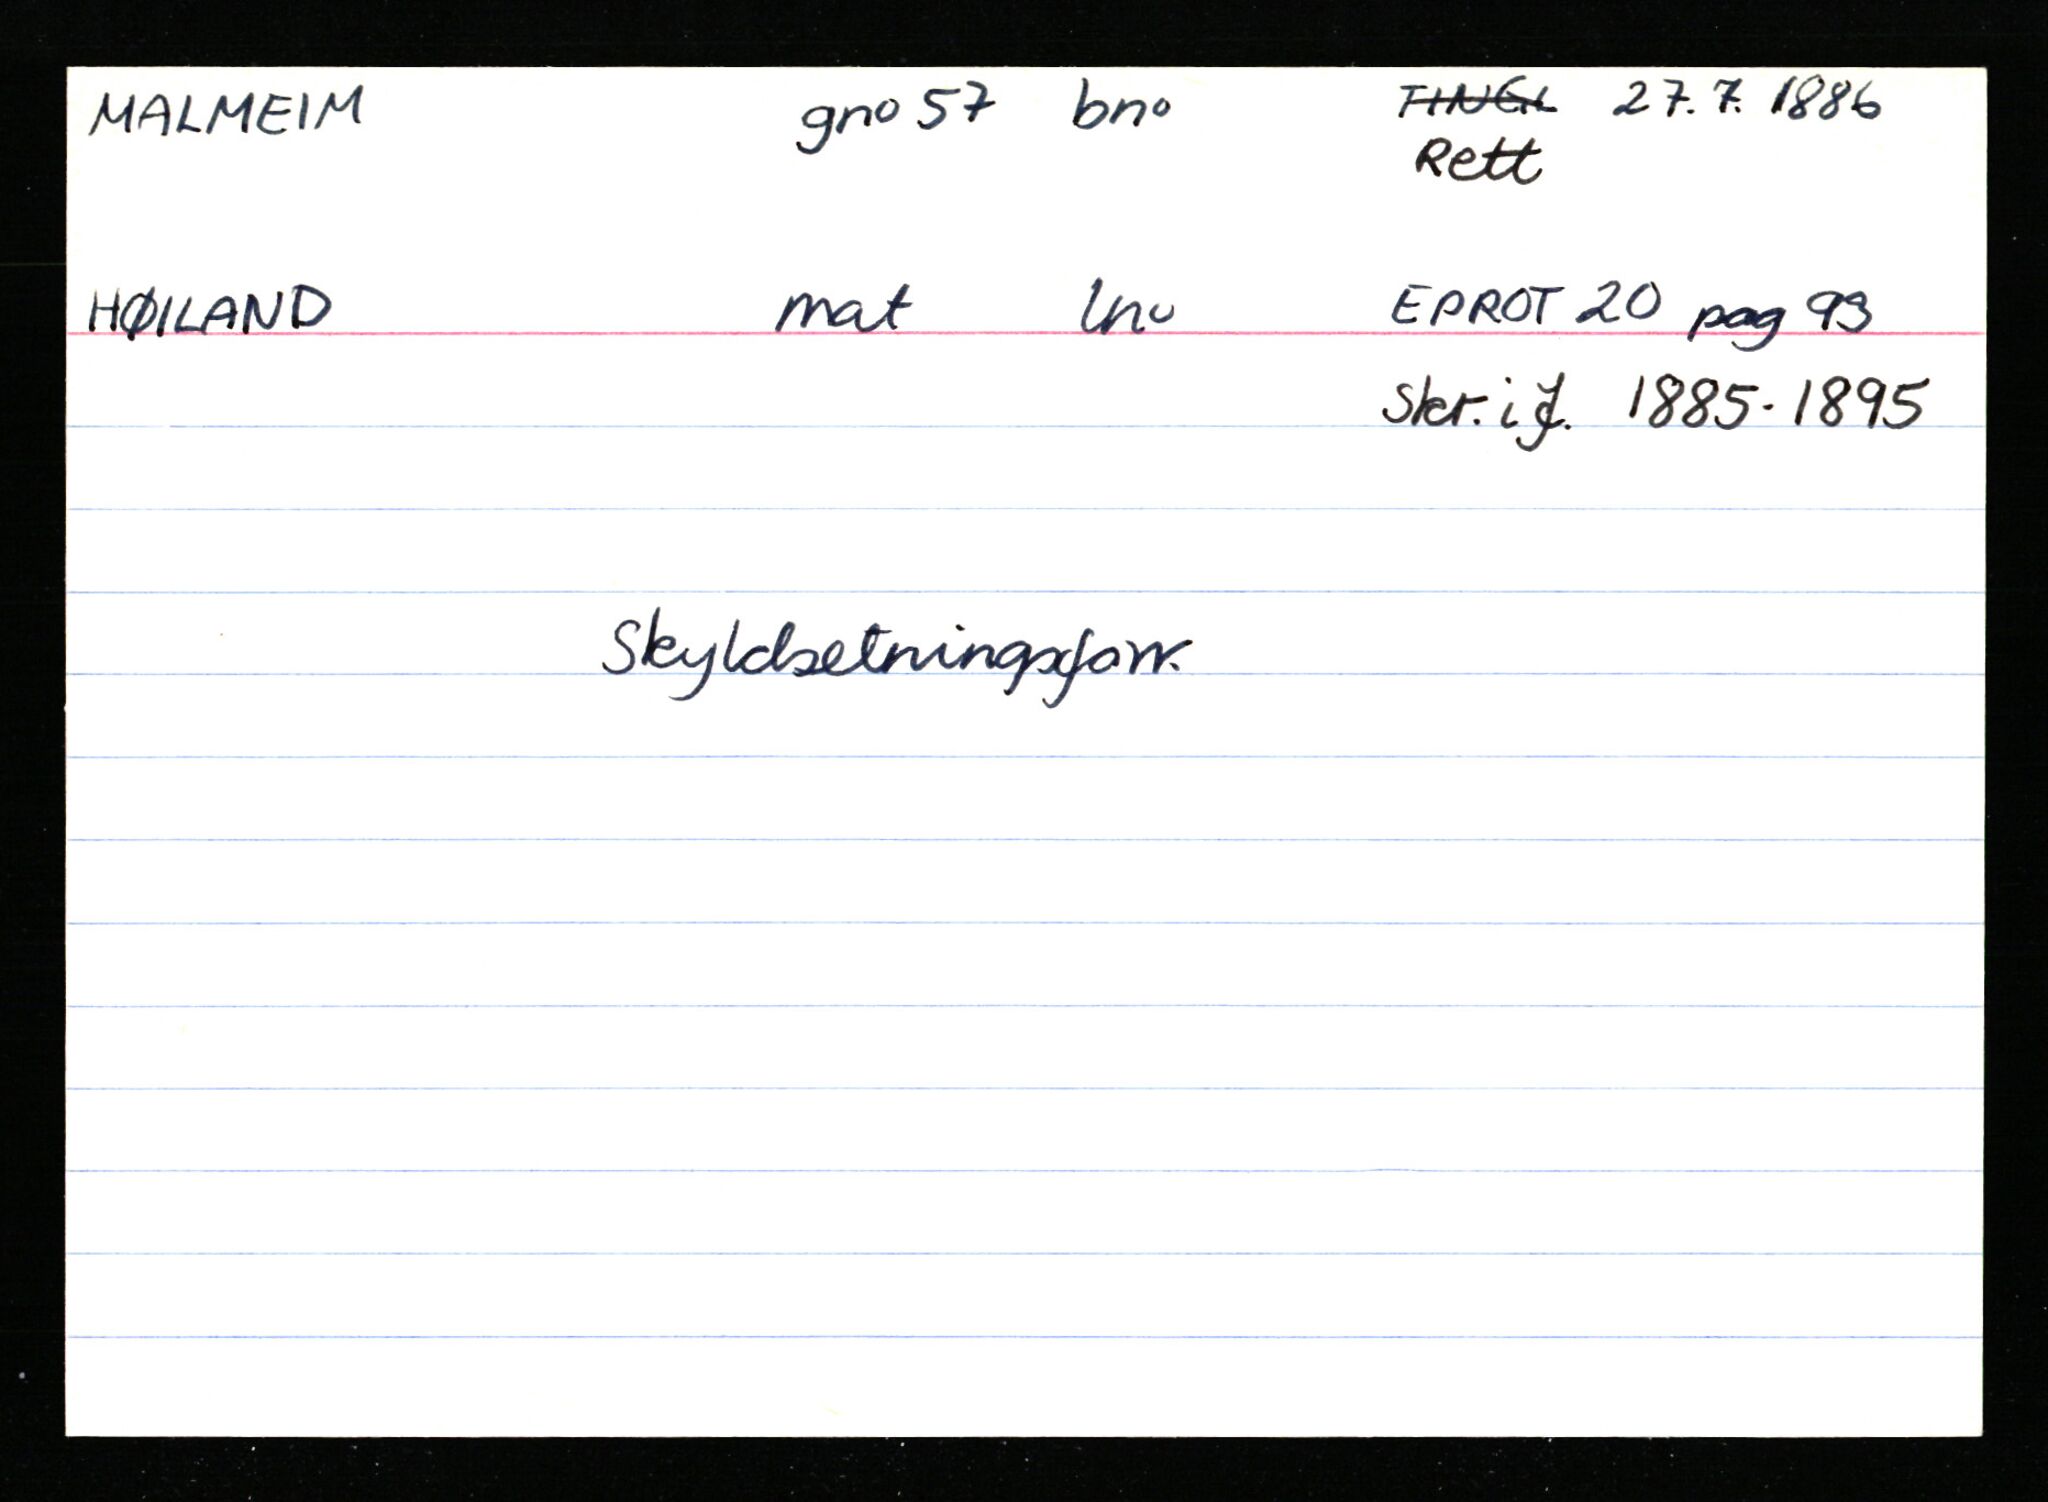 MALMEIM gno 57 bno TINGL 27.7. 1886
Rett
HØILAND mat lno EPROT 20 pag 93
Skr. i f. 1885-1895
Skyldsetningsforr.